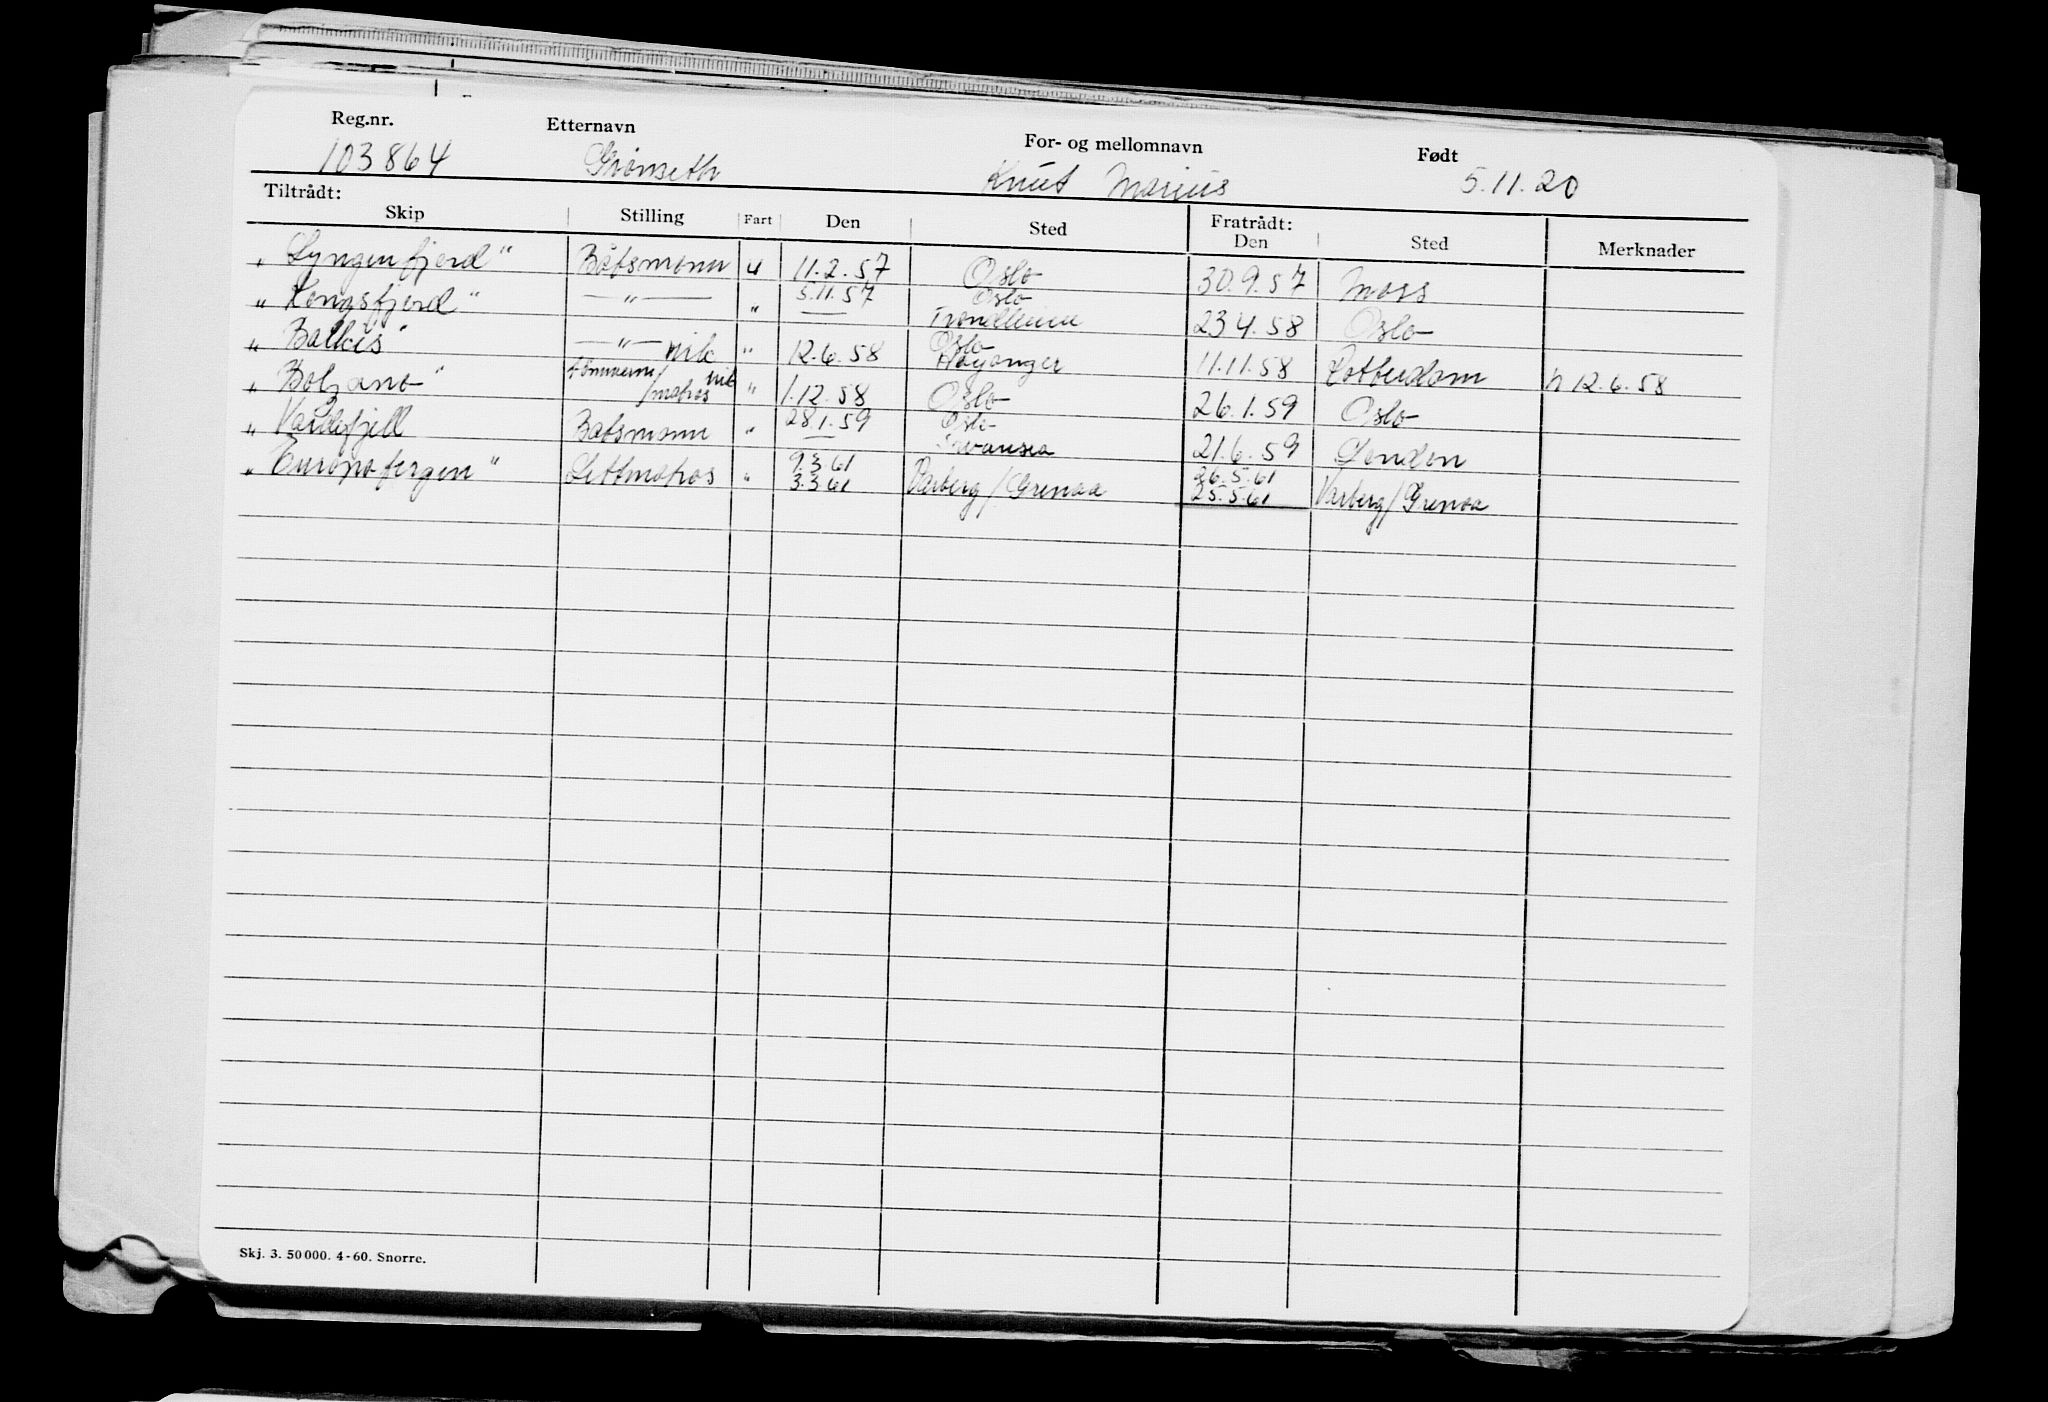 Reg.nr. Etternavn For- og mellomnavn Født
103864 Grønseth Knut Marius 5.11.20
Tiltrådt: Fratrådt:
Skip Stilling Fart Den Sted Den Sted Merknader
"Lyngenfjord" Båtsmann u 11.2.57 Oslo 30.9.57 Moss
"Kongsfjord" —"— " 5.11.57 Oslo Trondheim 23.4.58 Oslo
"Balkis" —"— vik " 12.6.58 Oslo Høyanger 11.11.58 Rotterdam h 12.6.58
"Bolzano" tømmerm/matros vik " 1.12.58 Oslo 26.1.59 Oslo
"Vardefjell Båtsmann " 28.1.59 Oslo Swansea 21.6.59 London
"Europafergen" Lettmatros " 9.3.61 3.3.61 Varberg/Grenaa 26.5.61 25.5.61 Varberg/Grenaa
Skj. 3. 50 000. 4-60. Snorre.